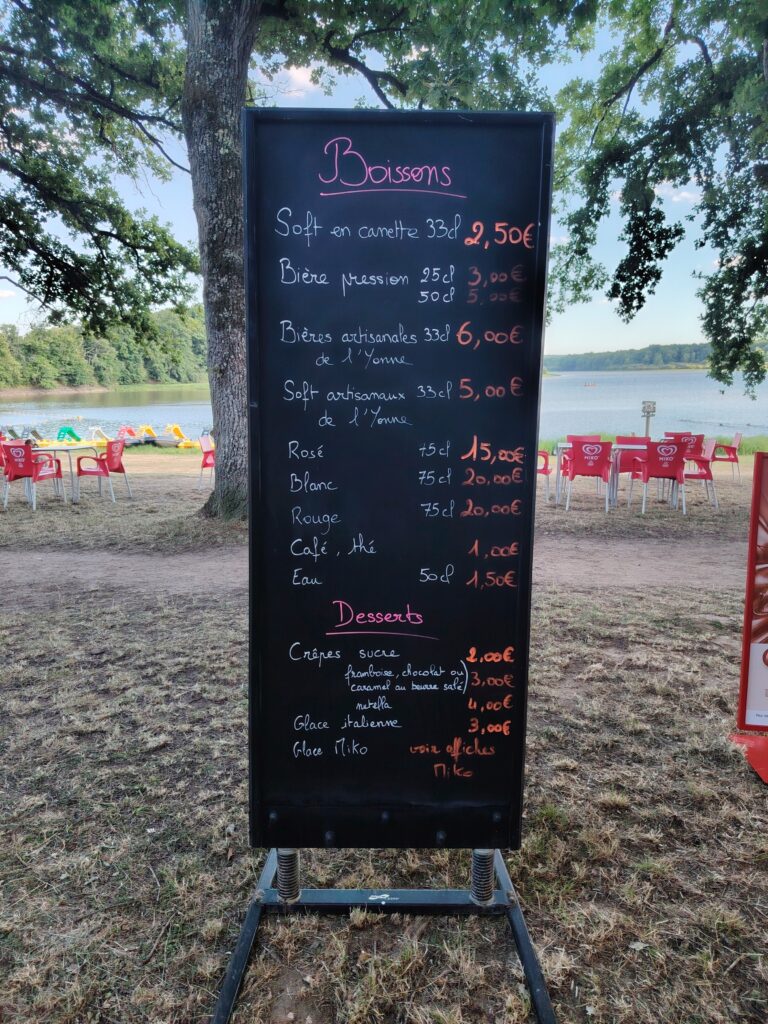 Boissons
Soft en canette 33cl 2,50€
Bière pression 25cl 3,00€
50cl 5,00€
Bières artisanales 33cl 6,00€
de l'Yonne
Soft artisanaux 33cl 5,00€
de l'Yonne
Rosé 75cl 15,00€
Blanc 75cl 20,00€
Rouge 75cl 20,00€
Café, thé 1,00€
Eau 50cl 1,50€
Desserts
Crêpes sucre 2,00€
framboise, chocolat ou
caramel au beurre salé) 3,00€
nutella 4,00€
Glace italienne 3,00€
Glace Miko voir affiches
Miko
MIKO
MIKO
MIKO